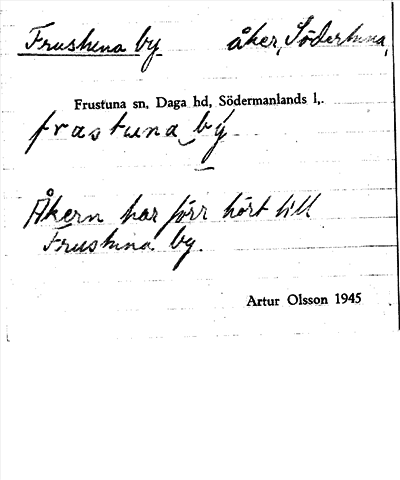 Frustuna by åker, Södertuna,
Frustuna sn, Daga hd, Södermanlands l,.
frastuna by
Åkern har förr hört till
Frustuna by.
Artur Olsson 1945